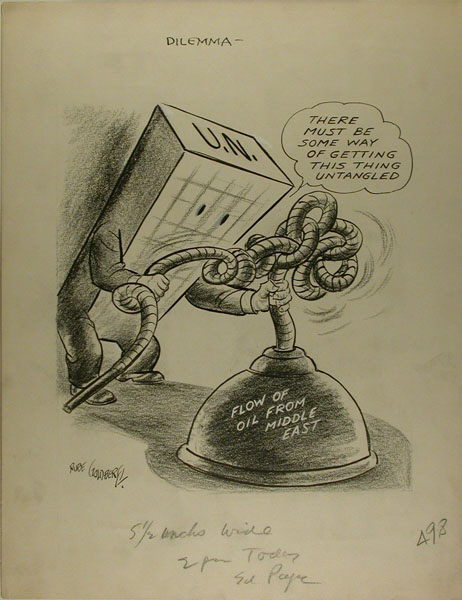 DILEMMA-
U.N.
THERE
MUST BE
SOME WAY
OF GETTING
THIS THING
UNTANGLED
FLOW OF
OIL FROM
MIDDLE
EAST
RUBE GOLDBERG
5 1/2 inches wide
2 pm Today
498